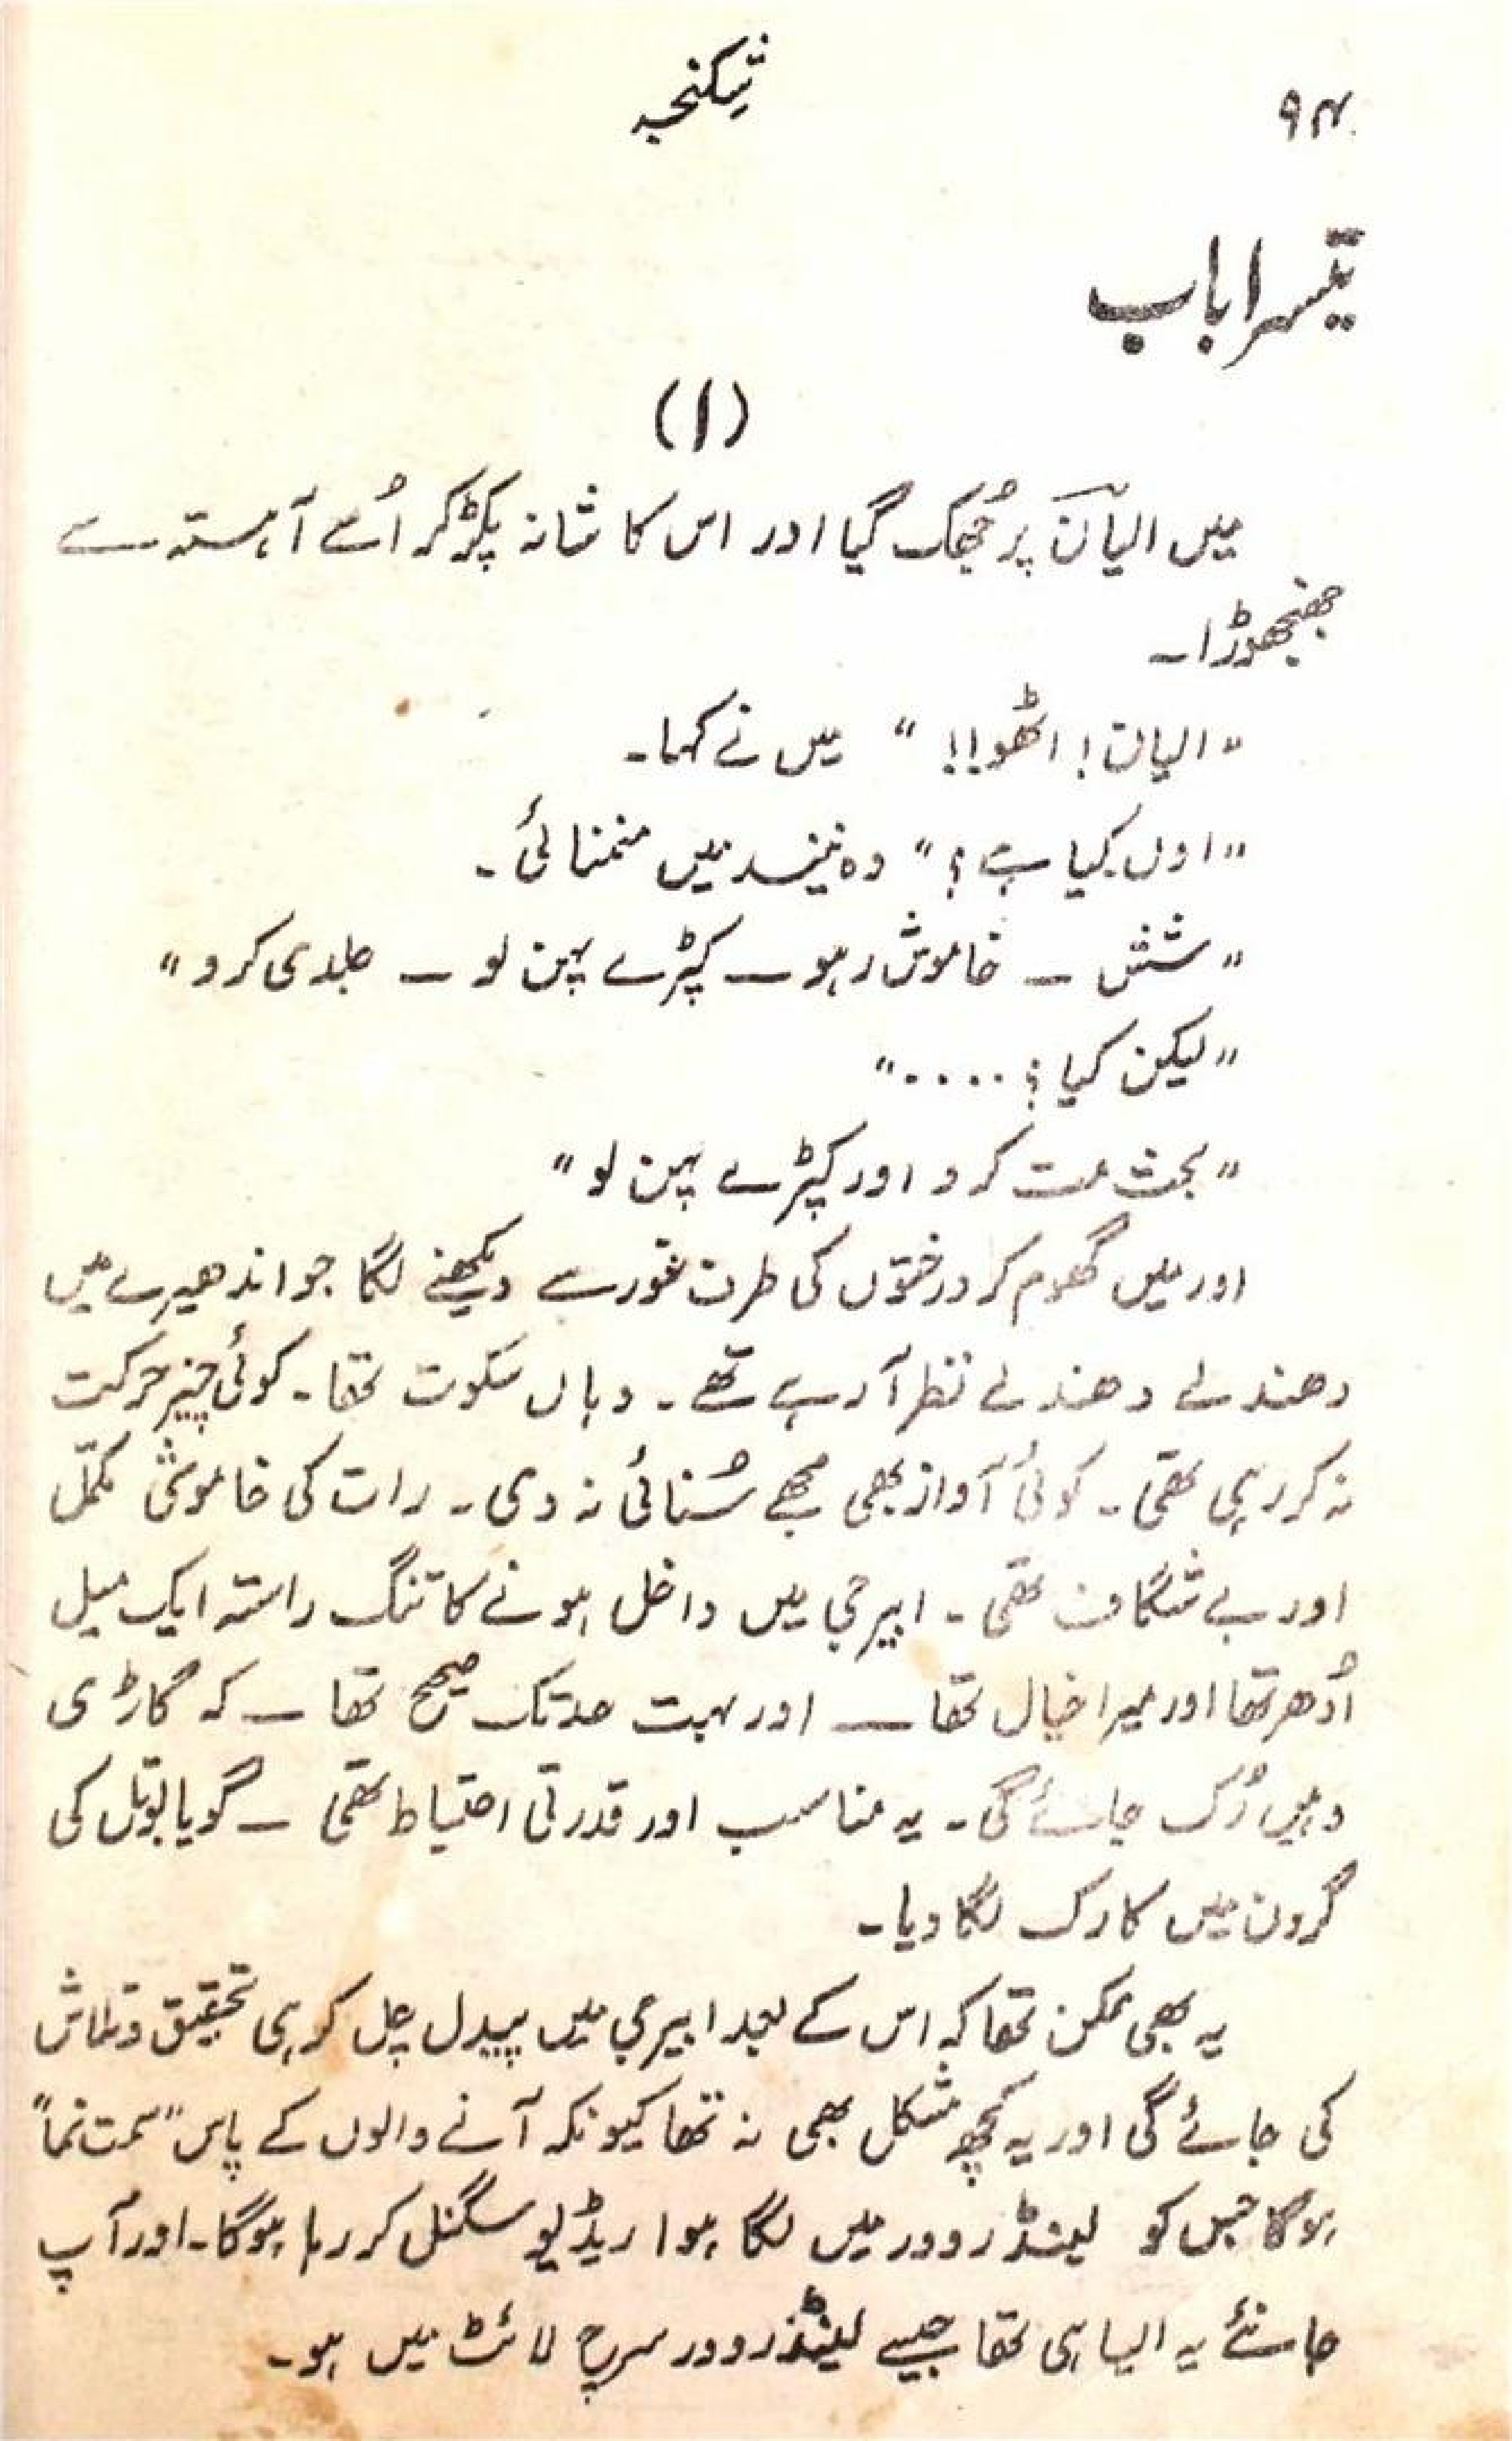 ۹۴
شکنجہ
تیسرا باب
(۱)
میں الیان پر جُھک گیا اور اس کا شانہ پکڑ کر اُسے آہستہ سے
جھنجھوڑا۔
"الیان! اٹھو!!" میں نے کہا۔
"اوں کیا ہے؟" وہ نیند میں منمنائی۔
"شش — خاموش رہو — کپڑے پہن لو — جلدی کرو"
"لیکن کیا؟ ...."
"بحث مت کرو اور کپڑے پہن لو"
اور میں گھوم کر درختوں کی طرف غور سے دیکھنے لگا جو اندھیرے میں
دھندلے دھندلے نظر آ رہے تھے۔ وہاں سکوت تھا۔ کوئی چیز حرکت
نہ کر رہی تھی۔ کوئی آواز بھی مجھے سُنائی نہ دی۔ رات کی خاموشی مکمّل
اور بے شگاف تھی۔ ابیرجی میں داخل ہونے کا تنگ راستہ ایک میل
اُدھر تھا اور میرا خیال تھا — اور بہت حد تک صحیح تھا — کہ گاڑی
وہیں رُک جائے گی۔ یہ مناسب اور قدرتی احتیاط تھی — گویا بوتل کی
گردن میں کارک لگا دیا۔
یہ بھی ممکن تھا کہ اس کے بعد ابیرجی میں پیدل چل کر ہی تحقیق و تلاش
کی جائے گی اور یہ کچھ مشکل بھی نہ تھا کیونکہ آنے والوں کے پاس "سمت نما"
ہوگا جس کو لینڈ روور میں لگا ہوا ریڈیو سگنل کر رہا ہوگا۔ اور آپ
جانئے یہ ایسا ہی تھا جیسے لینڈ روور سرچ لائٹ میں ہو۔